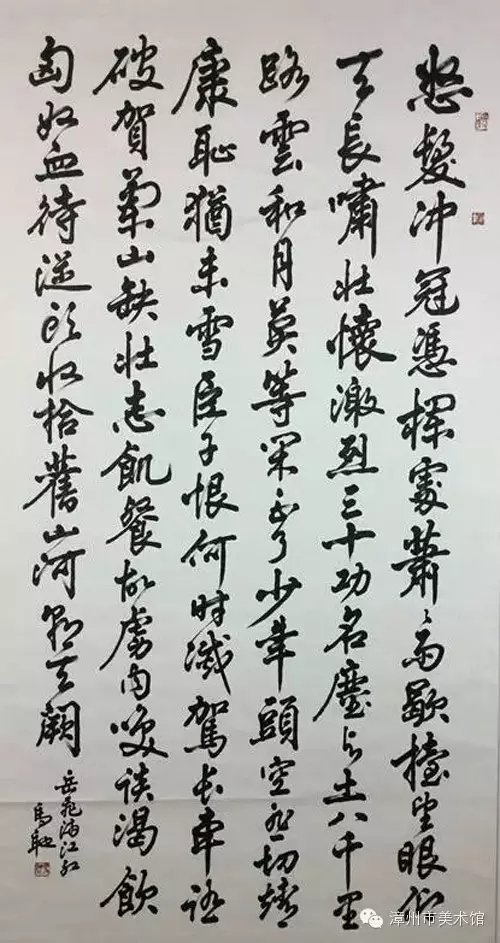 怒髮沖冠憑欄處蕭〻雨歇擡望眼仰
天長嘯壯懷激烈三十功名塵与土八千里
路雲和月莫等閑白了少年頭空悲切靖
康恥猶未雪臣子恨何时滅駕長車踏
破賀蘭山缺壯志飢餐胡虜肉笑談渴飲
匈奴血待從頭收拾舊山河朝天闕
岳飛滿江紅
漳州市美术馆